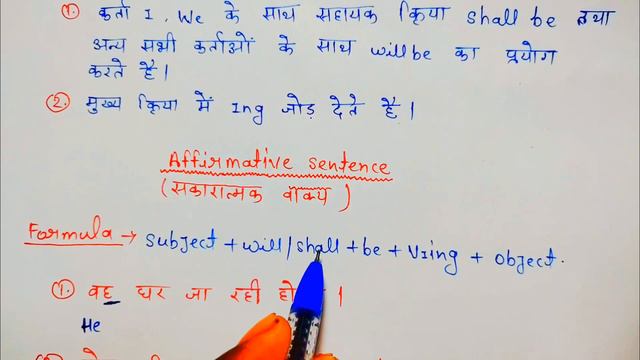 1. कर्ता I, We के साथ सहायक क्रिया shall be तथा
अन्य सभी कर्ताओं के साथ will be का प्रयोग
करते है।
2. मुख्य क्रिया में Ing जोड़ देते है।
Affirmative sentence
(सकारात्मक वाक्य)
Formula → Subject + will/shall + be + V1ing + Object.
1. वह घर जा रही हो ।
He